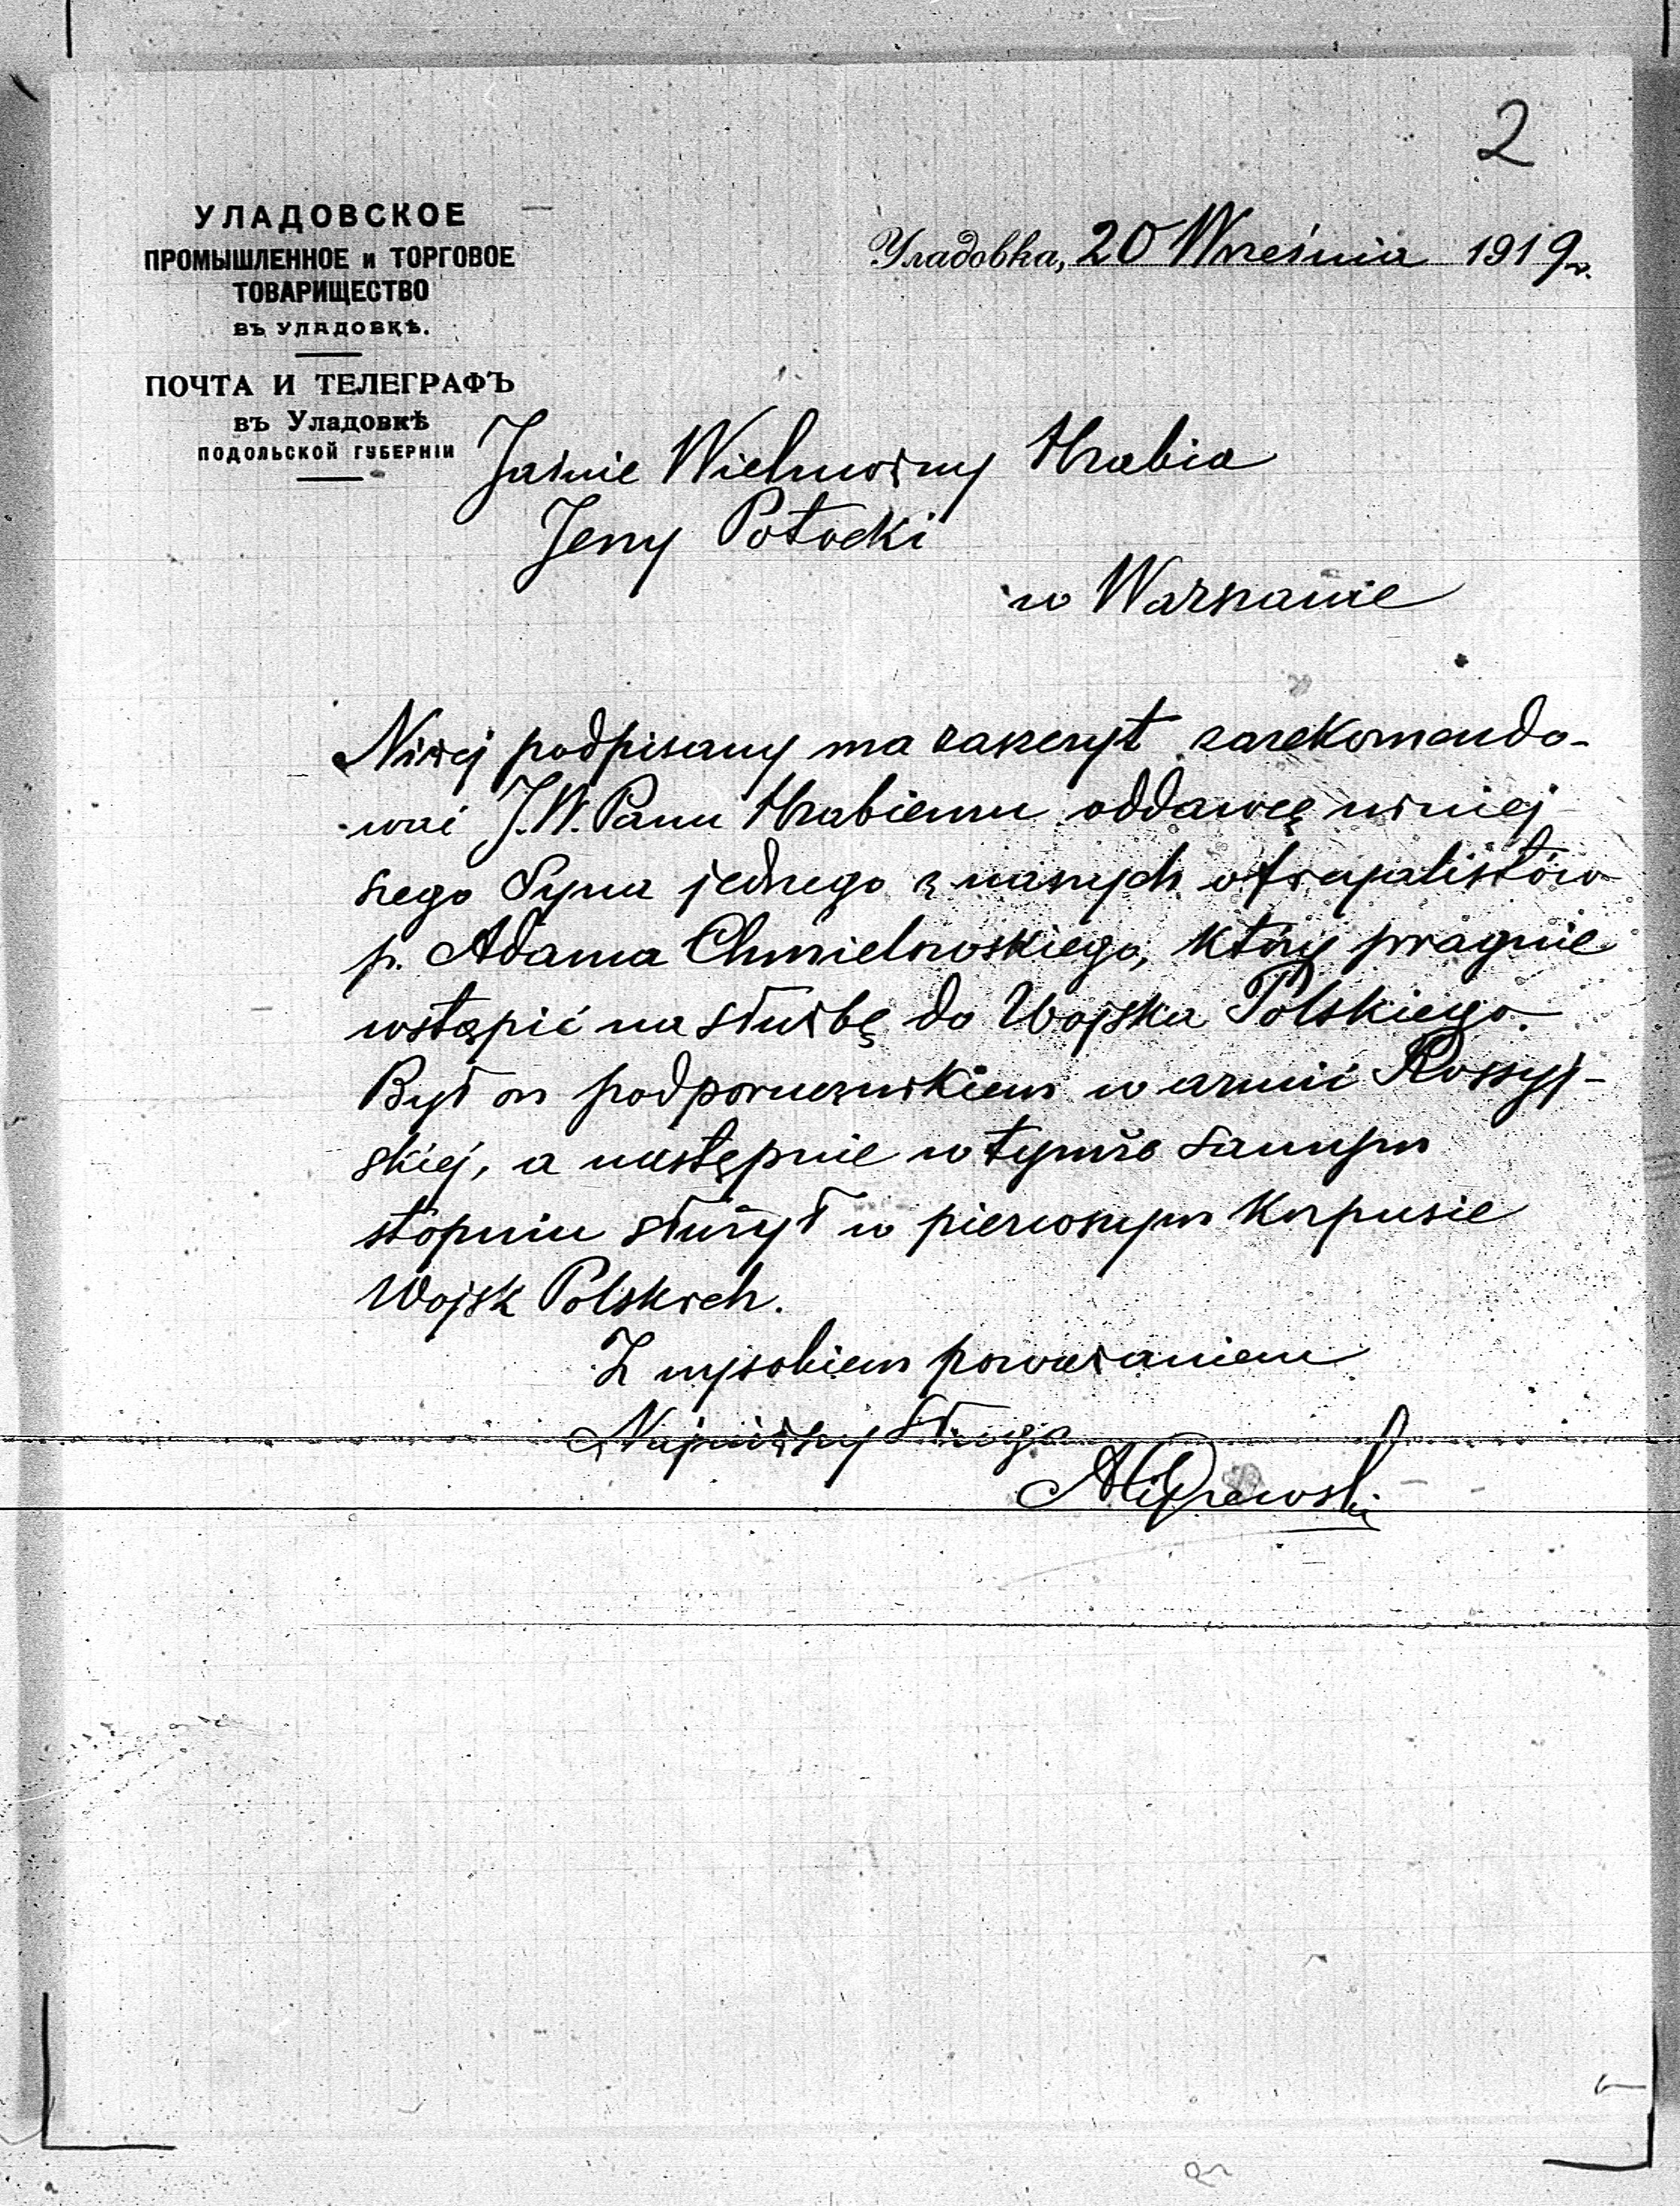 2
УЛАДОВСКОЕ
ПРОМЫШЛЕННОЕ и ТОРГОВОЕ
ТОВАРИЩЕСТВО
въ УЛАДОВКѢ.
ПОЧТА И ТЕЛЕГРАФЪ
въ Уладовкѣ
ПОДОЛЬСКОЙ ГУБЕРНІИ
Уладовка, 20 Września 1919 r.
Jaśnie Wielmożny Hrabia
Jerzy Potocki
w Warszawie
Niżej podpisany ma zaszczyt zarekomendo-
wać J.W. Panu Hrabiemu oddawcę niniej
szego Syna jednego z naszych oficyalistów
p. Adama Chmielowskiego, który pragnie
wstąpić na służbę do Wojska Polskiego.
Był on podporucznikiem w armii Rossyj-
skiej, a następnie w tymże samym
stopniu służył w pierwszym Korpusie
Wojsk Polskich.
Z wysokiem poważaniem
Najniższy Sługa